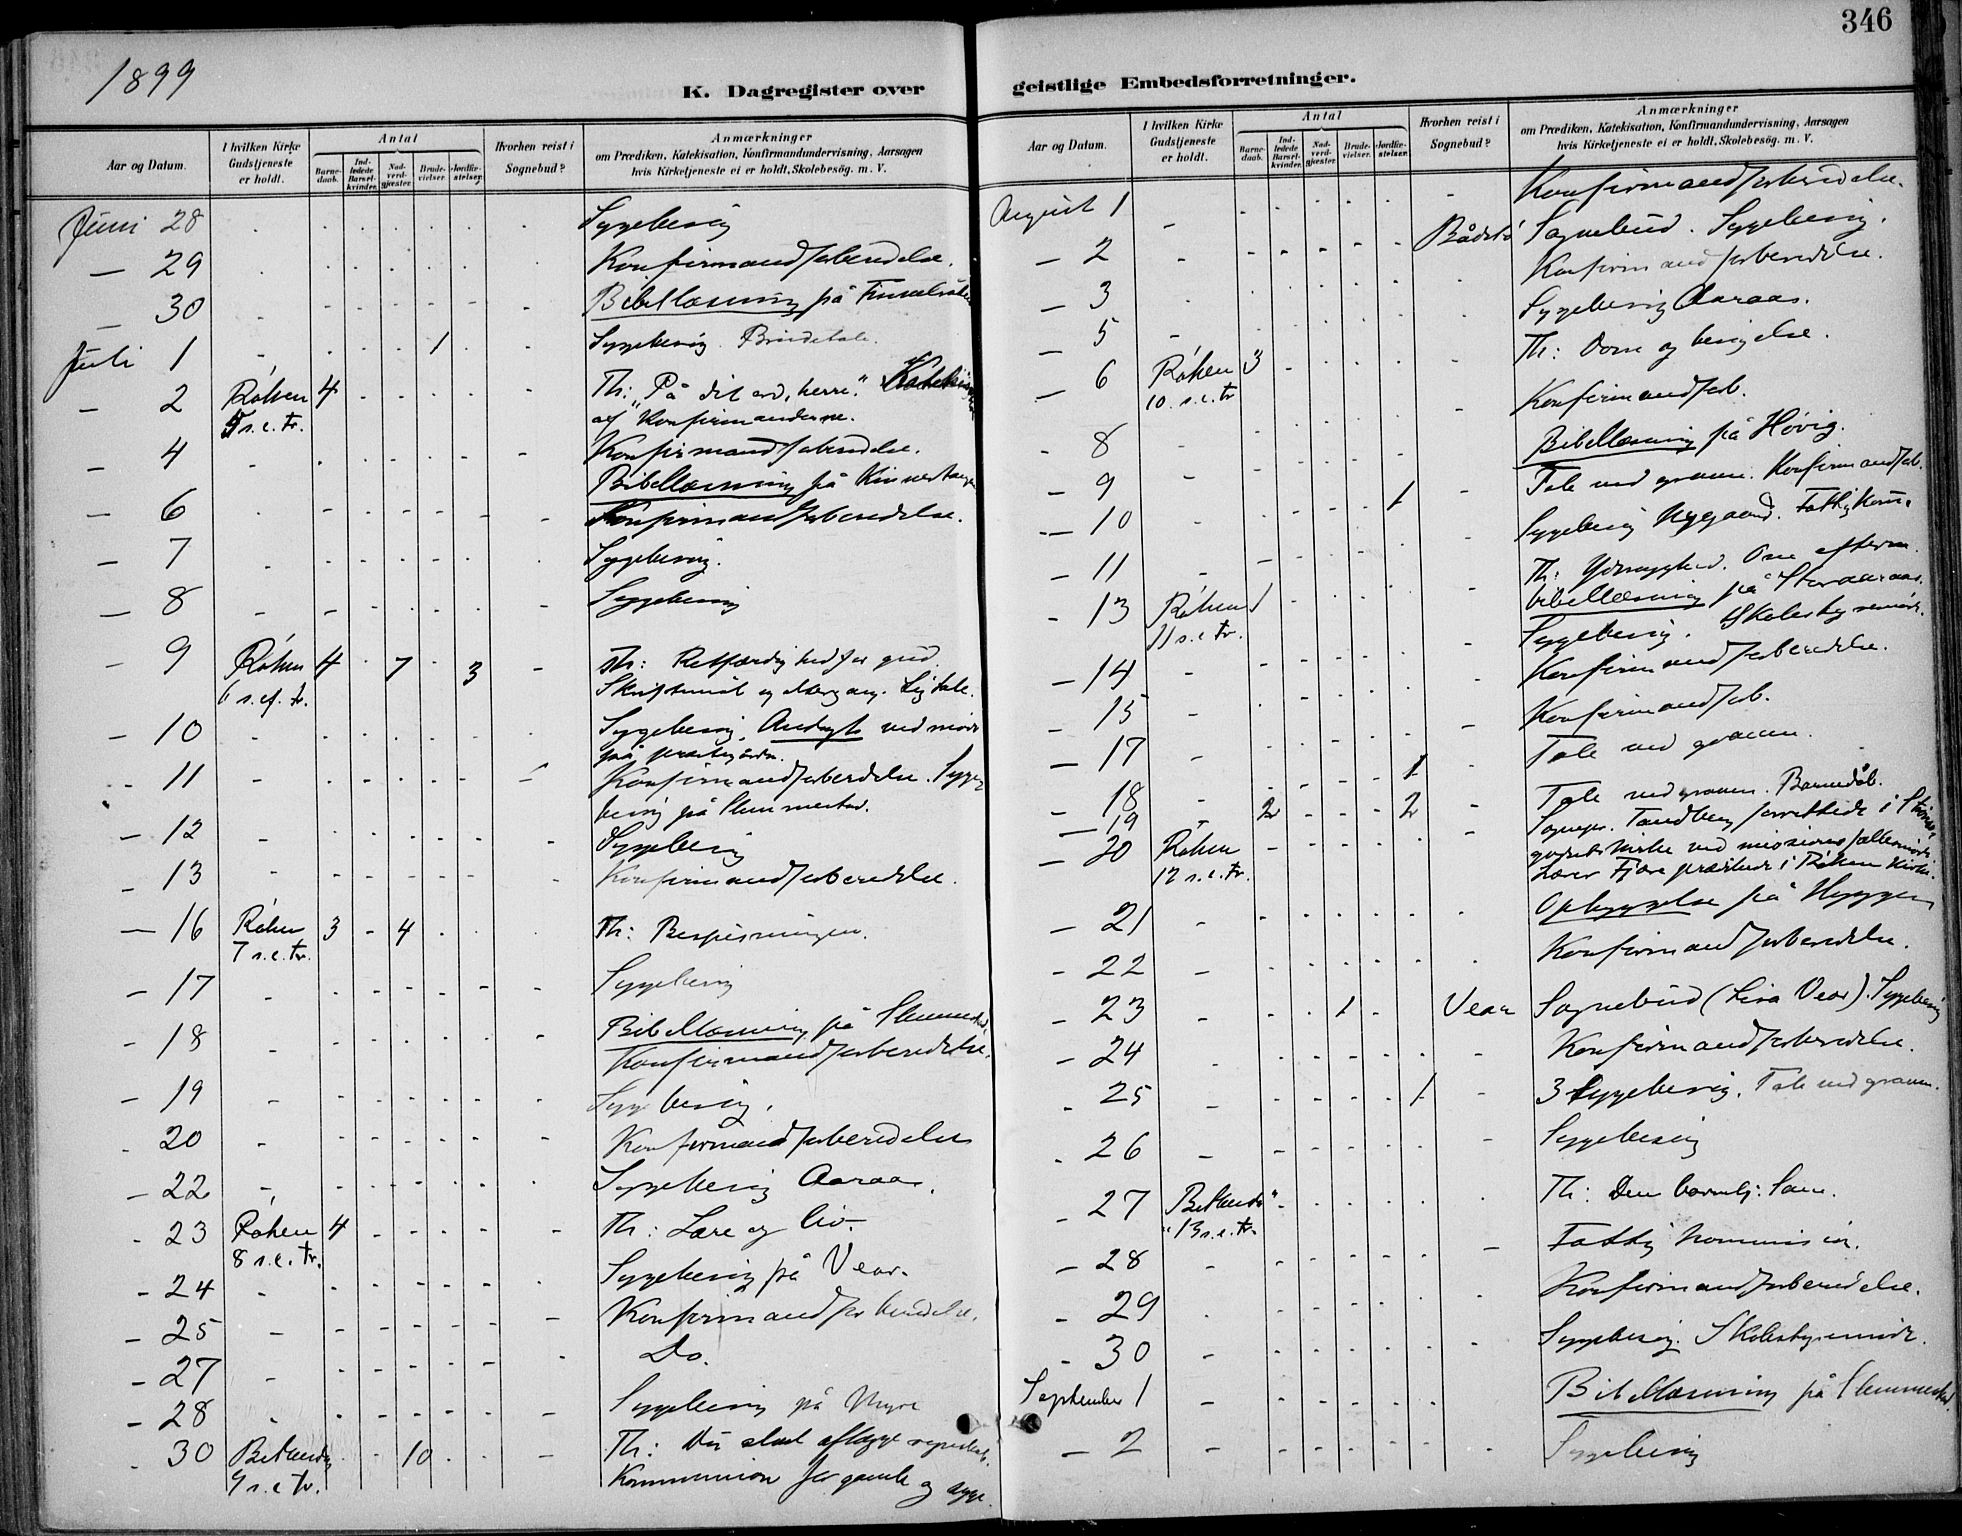 1899
K. Dagregister over
Aar og Datum.
I hvilken Kirke Gudstjeneste er holdt.
Antal
Barne-daab.
Ind-ledede Barsel-kvinder.
Nad-verd-gjæster.
Brude-vielser.
Jordfæ-stelser.
Hvorhen reist i Sognebud?
Anmærkninger
om Prædiken, Katekisation, Konfirmandundervisning, Aarsagen
hvis Kirketjeneste ei er holdt, Skolebesøg. m. V.
Juni 28 Sygebesøg
— 29 Konfirmandforberedelse.
— 30 Bibellæsning på
Juli 1 1 Sygebesøg. Brudetale.
— 2 Røken 4 Th: "På dit ord, herre".
5 s. e. tr. af Konfirmanderne.
— 4 Konfirmandforberedelse.
Bibellæsning på
— 6 Konfirmandforberedelse.
— 7 Sygebesøg.
— 8 Sygebesøg
— 9 Røken 4 7 3 Th: Retfærdighed for gud.
6 s. ef. tr. Skriftemål og Ligtale.
— 10 Sygebesøg. Andagt ved møde
på
— 11 Konfirmandforberedelse. Syge-
besøg på Slemmestad.
— 12 Sygebesøg
— 13 Konfirmandforberedelse.
— 16 Røken 3 4 Th: Bespisningen.
7 s. e. tr.
— 17 Sygebesøg
— 18 Bibellæsning på Slemmestad.
Konfirmandforberedelse.
— 19 Sygebesøg.
— 20 Konfirmandforberedelse
— 22 Sygebesøg Aaraas.
— 23 Røken 4 Th: Lære og liv.
8 s. e. tr.
— 24 Sygebesøg på Vear.
— 25 Konfirmandforberedelse.
— 27 Do.
— 28 Sygebesøg på Myre
— 30 10 Th: Du skal aflægge regnskab.
9 s. e. tr. Kommunion for gamle og syge.
346
geistlige Embedsforretninger.
Aar og Datum.
I hvilken Kirke Gudstjeneste er holdt.
Antal
Barne-daab.
Ind-ledede Barsel-kvinder.
Nad-verd-gjæster.
Brude-vielser.
Jordfæ-stelser.
Hvorhen reist i Sognebud?
Anmærkninger
om Prædiken, Katekisation, Konfirmandundervisning, Aarsagen
hvis Kirketjeneste ei er holdt, Skolebesøg. m. V.
August 1 Konfirmandforberedelse.
— 2 Bådstø Sognebud. Sygebesøg.
— 3 Konfirmandforberedelse.
— 5 Sygebesøg Aaraas.
— 6 Røken 3 Th: Dom og
10. s. e. tr
— 8 Konfirmandforb.
— 9 Bibellæsning på Høvig.
— 10 1 Tale ved graven. Konfirmandforb.
— 11 Sygebesøg Nygaard. Fattigkom.
— 13 Røken 1 Th: Ydmyghed. Om efterm.
11 s. e. tr. bibellæsning på Storaaraas.
— 14 Sygebesøg. Skolestyremøde.
— 15 Konfirmandforberedelse.
— 17 Konfirmandforb.
1 Tale ved graven.
— 18 2 2 Tale ved graven. Barnedåb.
— 19 Sognepr. Tandberg forrettede i
— 20 Røken kirke ved missionsfællesmøde
12 s. e. tr. Lærer prædikede i Røken kirke.
— 21 Opbyggelse på Hyggen
— 22 Konfirmandforberedelse.
— 23 1 Vear Sognebud (Lisa Vear). Sygebesøg
— 24 Konfirmandforberedelse.
— 25 1 3 Sygebesøg. Tale ved graven.
— 26 Sygebesøg
— 27 Th: Den barmhj. Sam.
13 s. e. tr.
— 28 Fattigkommission.
— 29 Konfirmandforberedelse.
— 30 Sygebesøg. Skolestyremøde.
September 1 Bibellæsning på Slemmestad.
— 2 Sygebesøg